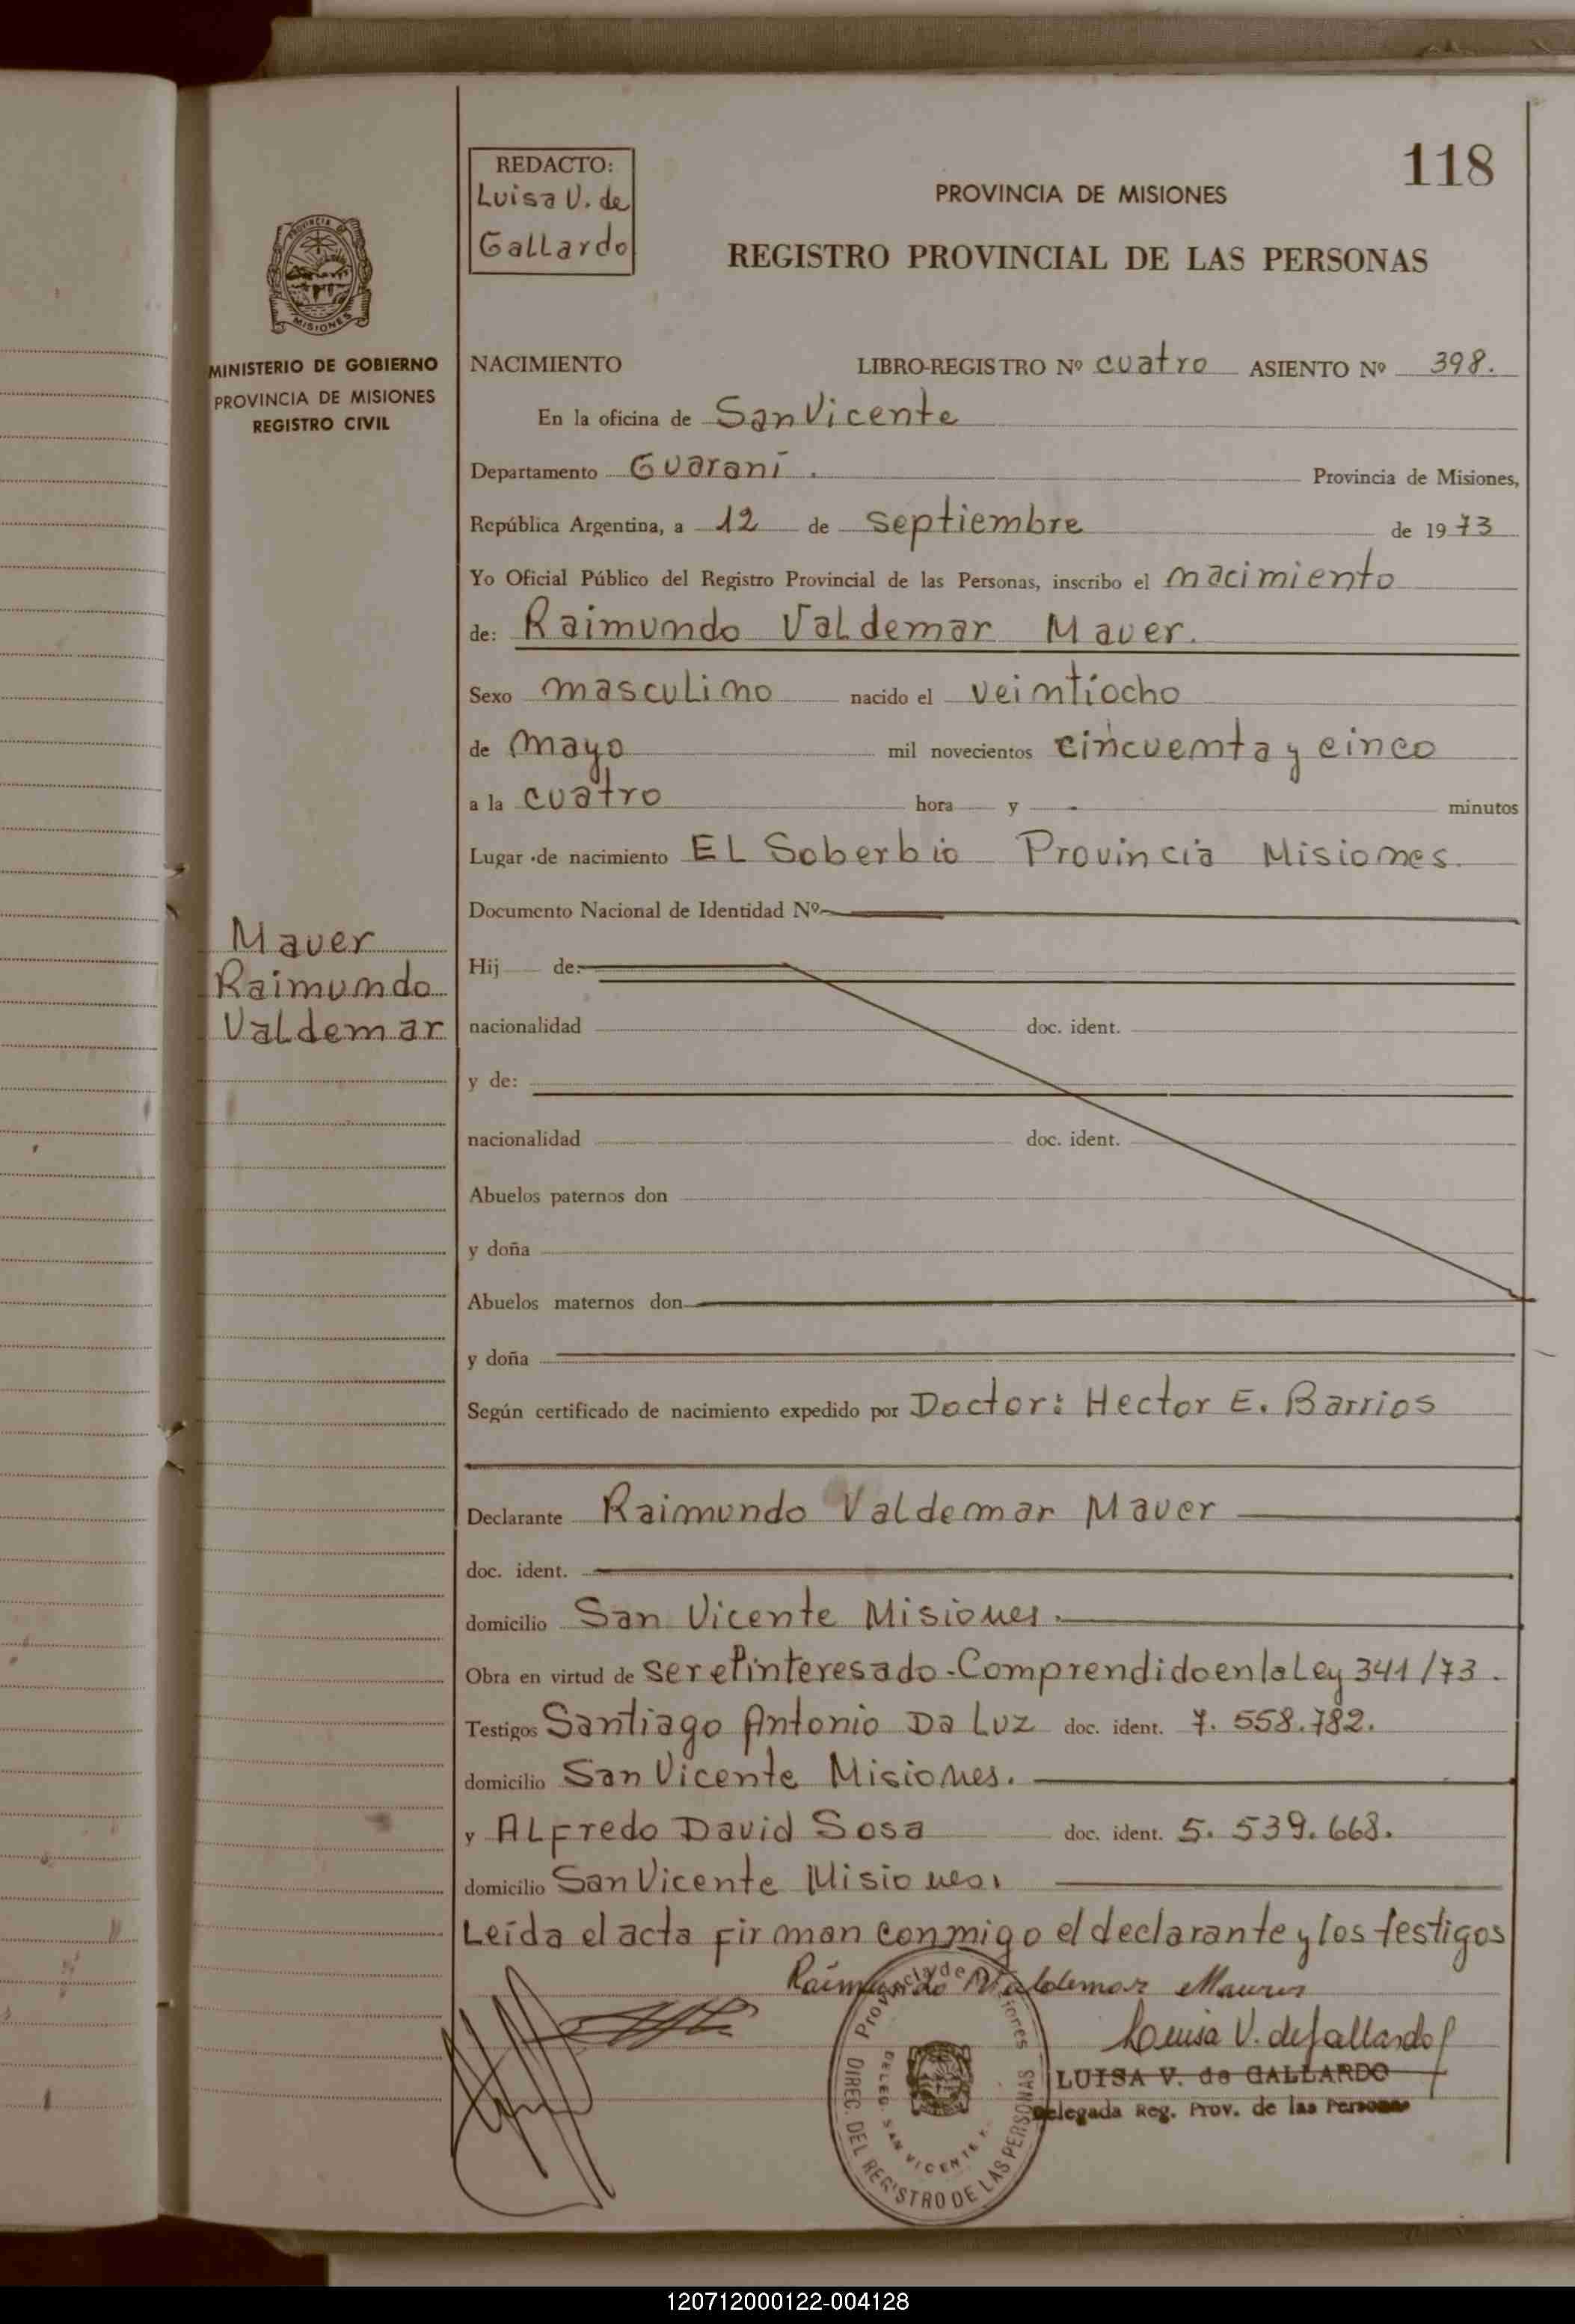 118
REDACTO:
Luisa V. de
Gallardo
PROVINCIA DE MISIONES
REGISTRO PROVINCIAL DE LAS PERSONAS
MISIONES
MINISTERIO DE GOBIERNO
PROVINCIA DE MISIONES
REGISTRO CIVIL
NACIMIENTO LIBRO-REGISTRO Nº cuatro ASIENTO Nº 398.
En la oficina de San Vicente
Departamento Guaraní. Provincia de Misiones,
República Argentina, a 12 de septiembre de 1973
Yo Oficial Público del Registro Provincial de las Personas, inscribo el nacimiento
de: Raimundo Valdemar Mauer.
Sexo masculino nacido el veintiocho
de mayo mil novecientos cincuenta y cinco
a la cuatro hora y - minutos
Lugar de nacimiento El Soberbio Provincia Misiones.
Documento Nacional de Identidad Nº
Mauer
Raimundo
Valdemar
Hij de:
nacionalidad doc. ident.
y de:
nacionalidad doc. ident.
Abuelos paternos don
y doña
Abuelos maternos don
y doña
Según certificado de nacimiento expedido por Doctor: Hector E. Barrios
Declarante Raimundo Valdemar Mauer
doc. ident.
domicilio San Vicente Misiones.
Obra en virtud de ser el interesado-Comprendido en la Ley 341/73.
Testigos Santiago Antonio Da Luz doc. ident. 7.558.782.
domicilio San Vicente Misiones.
y Alfredo David Sosa doc. ident. 5.539.668.
domicilio San Vicente Misiones.
Leída el acta firman conmigo el declarante y los testigos
Raimundo Valdemar Maurer
Luisa V. de Gallardo
LUISA V. de GALLARDO
Delegada Reg. Prov. de las Personas
Provincia de Misiones
DIREC. DEL REGISTRO DE LAS PERSONAS
DELEG. SAN VICENTE
120712000122-004128